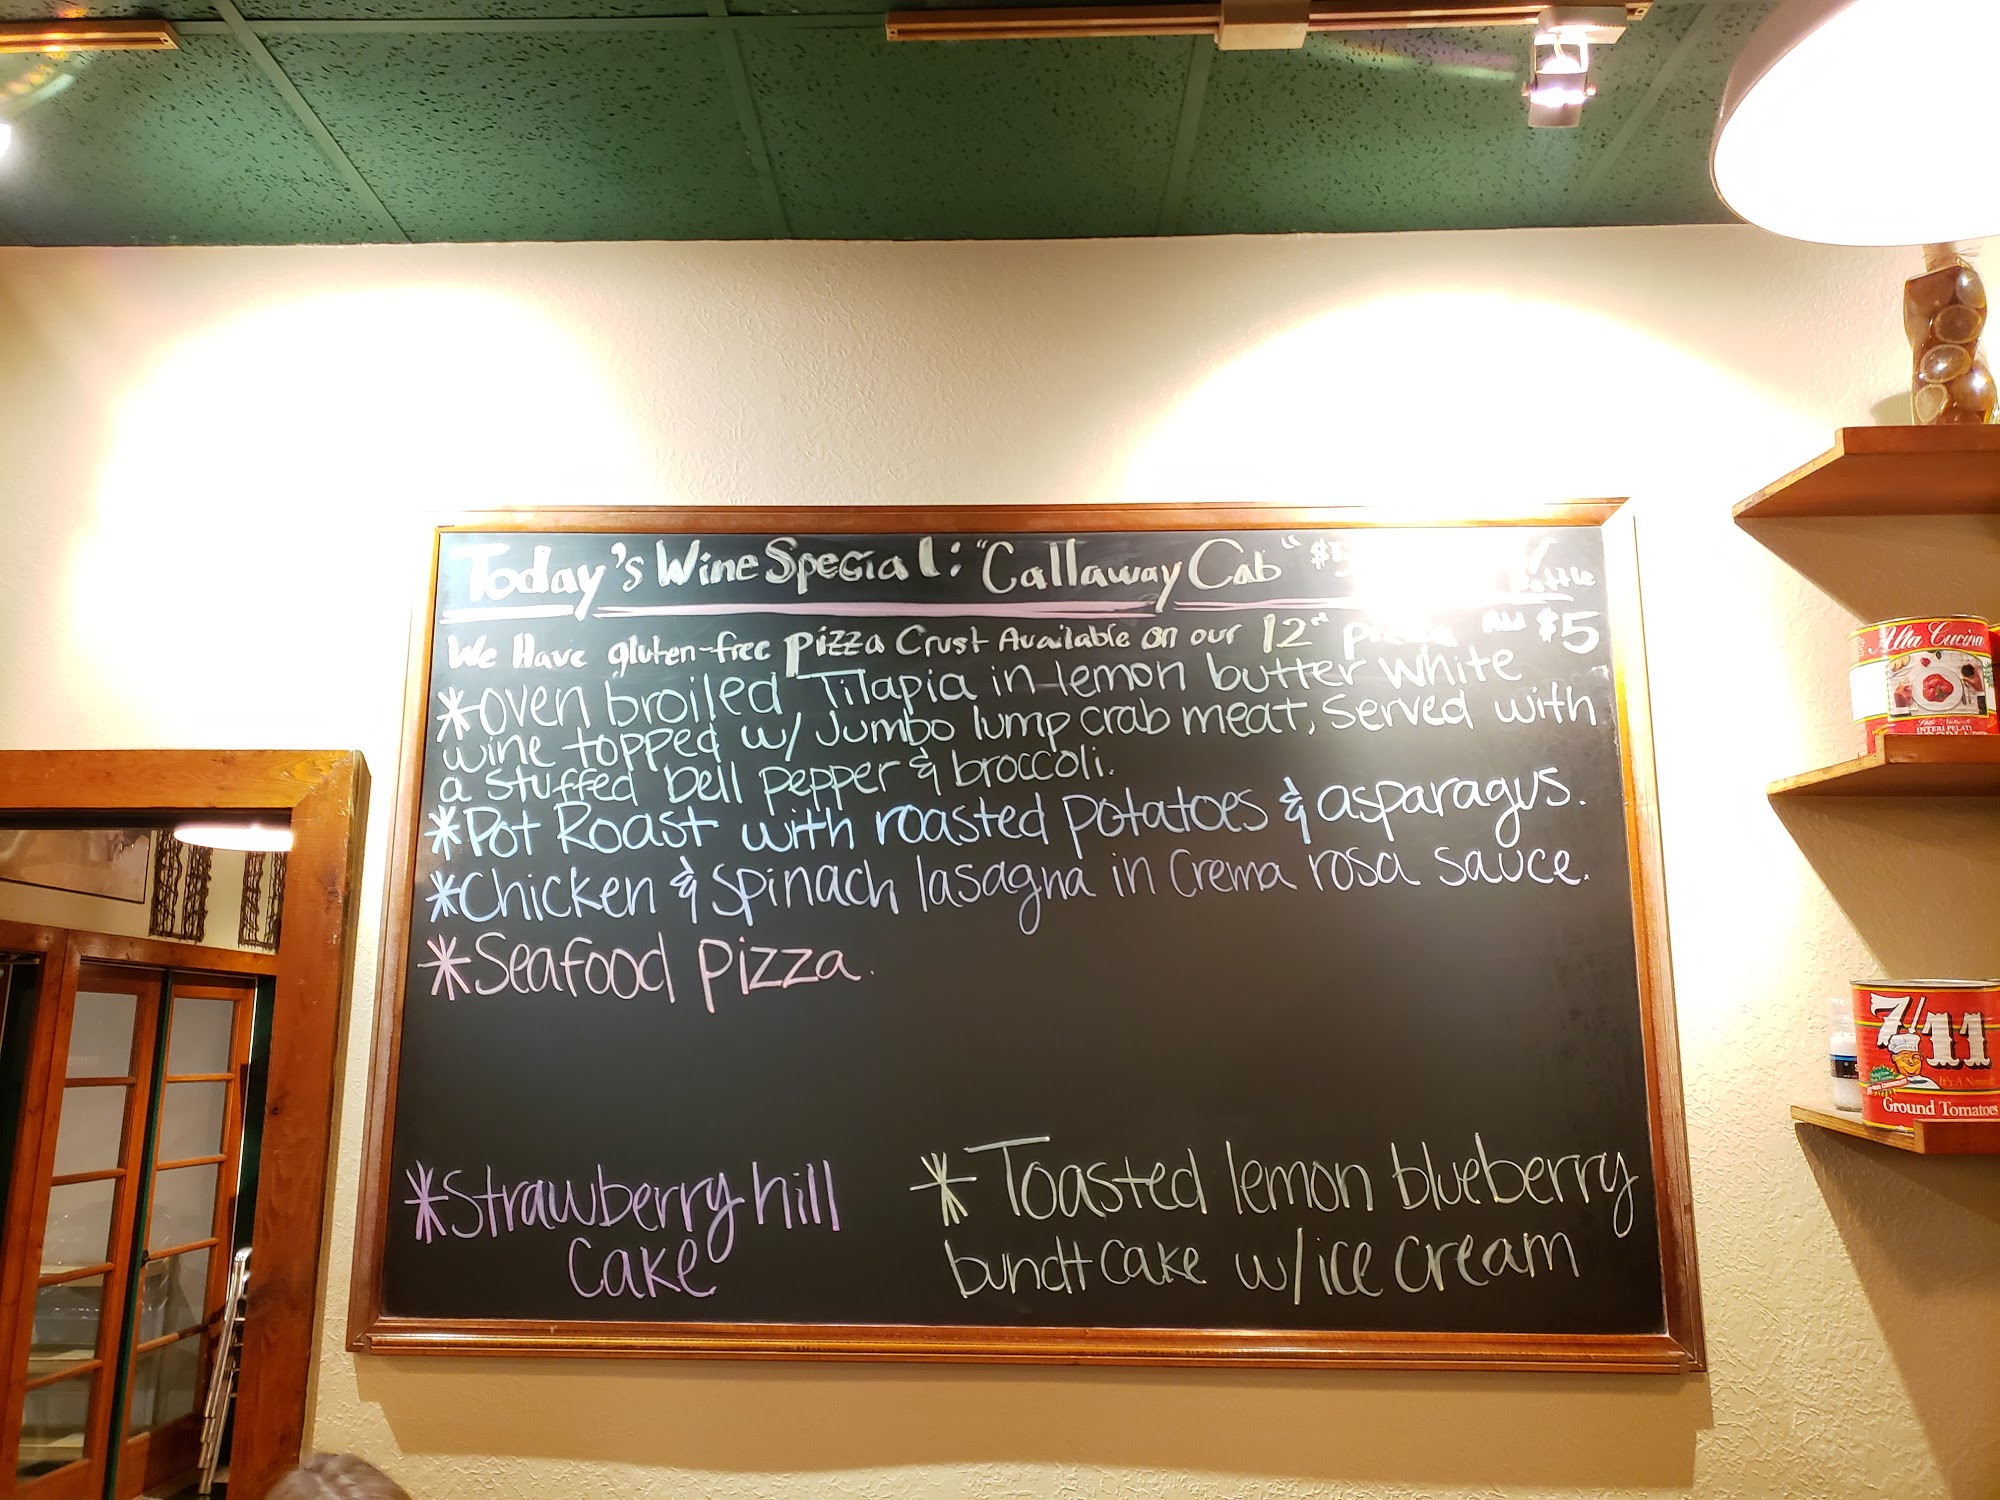 Today's Wine Special: "Callaway Cab" $5
Bottle
We Have gluten-free pizza Crust Available on our 12" pizza $5
*oven broiled Tilapia in lemon butter white
wine topped w/ Jumbo lump crab meat, Served with
a stuffed bell pepper & broccoli.
*Pot Roast with roasted potatoes & asparagus.
*Chicken & spinach lasagna in Crema rosa sauce.
*Seafood pizza.
*Strawberry hill
cake
*Toasted lemon blueberry
bundt cake w/ice cream
Alta Cucina
INTERI PELATI
7/11
It's A
Ground Tomatoes